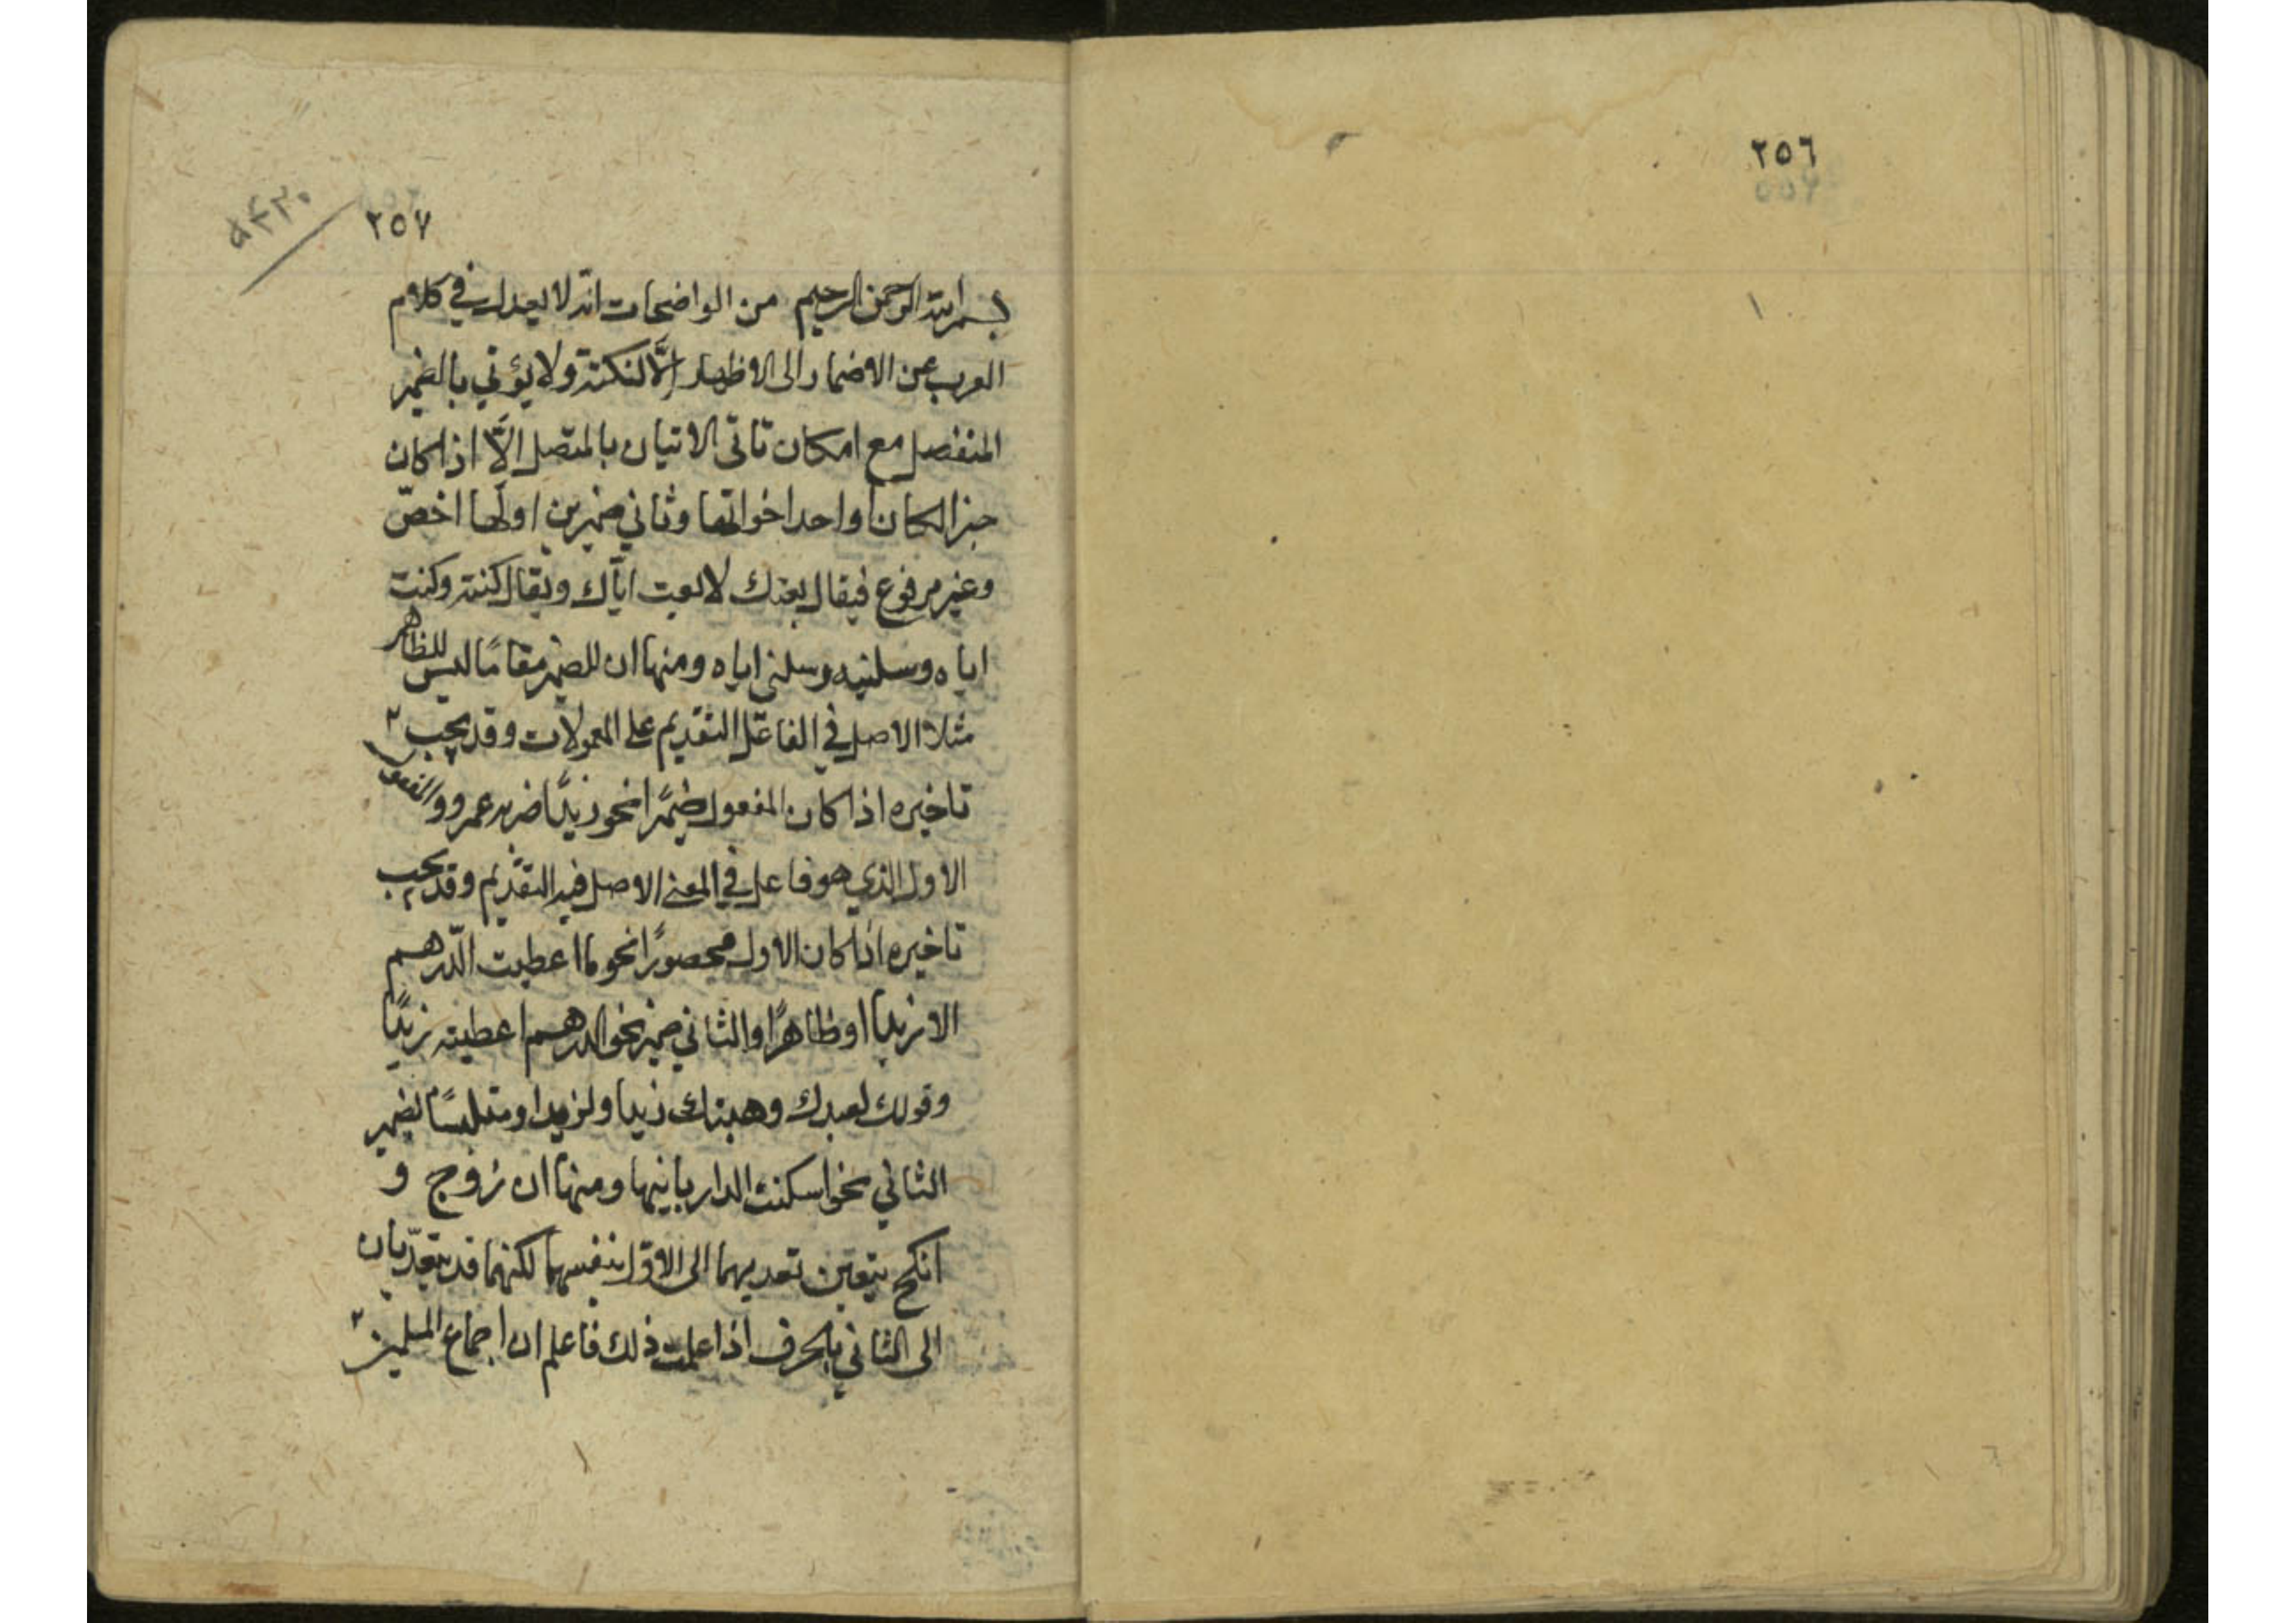 ٢٥٦
٢٥٧
بسم الله الرحمن الرحيم من الواضحات انه لا يعدل في كلام
العرب عن الاضمار الى الاظهار الّا لنكتة ولا يؤتي بالضمير
المنفصل مع امكان تاتى الاتيان بالمتصل الّا اذا كان
خبرا لكان او احد اخواتها وثاني ضميرين اولهما اخصّ
وغير مرفوع فيقال بعتك لا بعت ايّاك ويقال كنته وكنت
اياه وسلنيه وسلني اياه ومنها ان للضمير مقامًا ليس للظاهر
مثلا الاصل في الفاعل التقديم على المعمولات وقد يجب
تاخيره اذا كان المفعول ضميرًا نحو زيدًا ضربه عمرو والمفعول
الاول الذي هو فاعل في المعنى الاصل فيه التقديم وقد يجب
تاخيره اذا كان الاول محصورًا نحو ما اعطيت الدّرهم
الا زيدا او ظاهرًا والثاني ضمير نحو الدرهم اعطيته زيدًا
وقولك لعبدك وهبتك زيدا ولزيد او متلبسًا بضمير
الثاني نحو اسكنت الدار بانيها ومنها ان زوج و
انكح يتعين تعديهما الى الاوّل بنفسهما لكنهما قد يتعدّيان
الى الثاني بالحرف اذا علمت ذلك فاعلم ان اجماع المسلمين